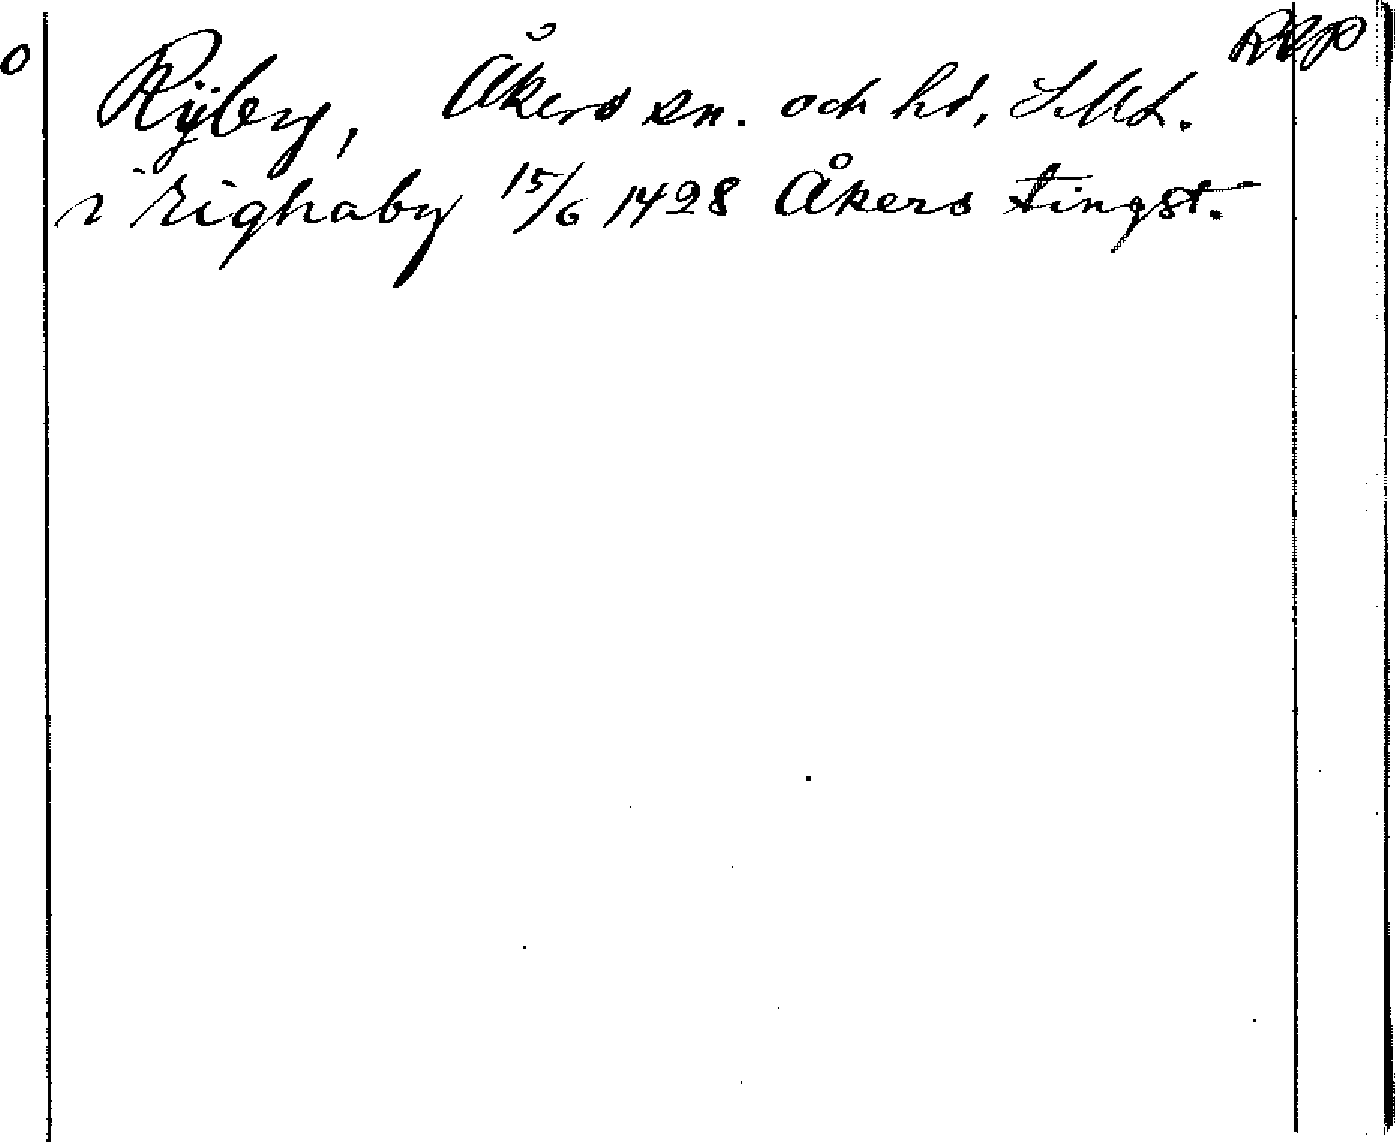 Ryby, Åkers sn. och hd, Sdml.
i righaby 15/6 1428 Åkers tingst.